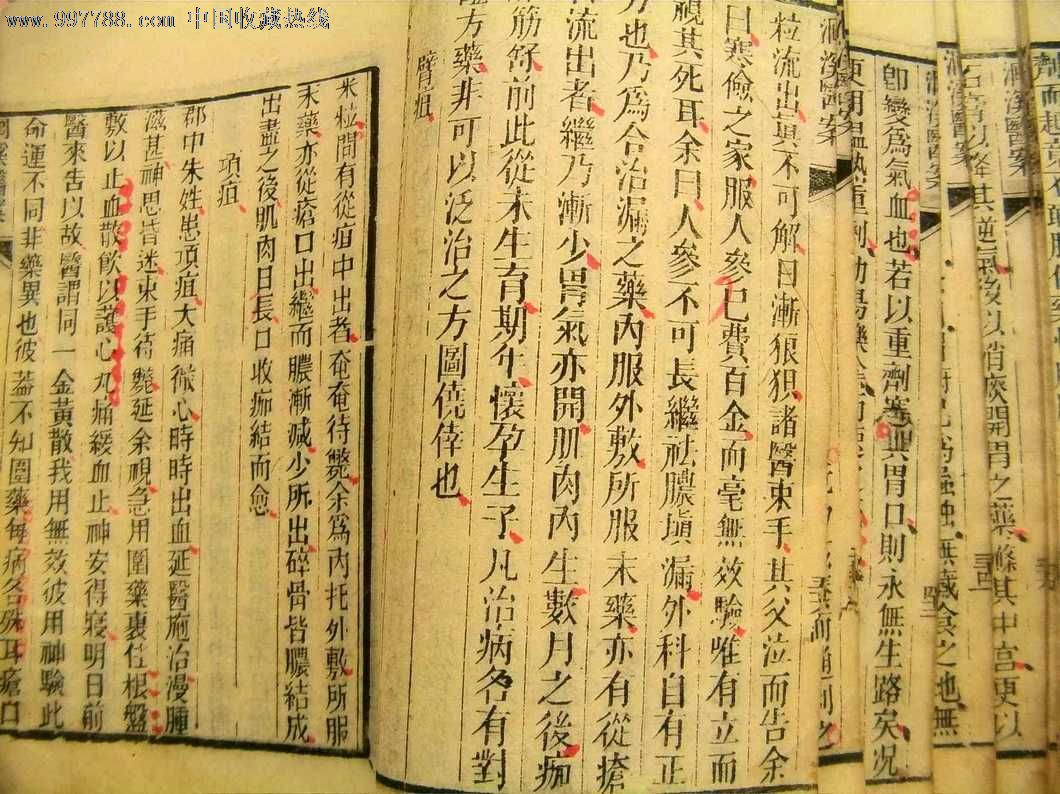 www.997788.com 中国收藏热线
劑而起
洄溪醫案
石膏以降其逆氣後以消痰開胃之藥滌其中宮更以
洄溪醫案
洄溪醫案
卽變爲氣血也若以重劑塞其胃口則永無生路矣况
更用温熱重劑
洄溪醫案
粒流出與不可解日漸狼狽諸醫束手其父泣而告余
曰寒儉之家服人參已費百金而毫無效驗唯有立而
視其死耳余曰人參不可長繼祛膿塡漏外科自有正
方也乃爲合治漏之藥內服外敷所服末藥亦有從瘡
流出者繼乃漸少胃氣亦開肌肉內生數月之後痂
筋舒前此從未生育期年懷孕生子凡治病各有對
方藥非可以泛治之方圖僥倖也
臂疽
米粒間有從疽中出者奄奄待斃余爲內托外敷所服
末藥亦從瘡口出繼而膿漸減少所出碎骨皆膿結成
出盡之後肌肉日長口收痂結而愈
項疽
郡中朱姓患項疽大痛徹心時時出血延醫施治漫腫
滋甚神思昏迷束手待斃延余視急用圍藥裹住根盤
敷以止血散飲以護心丸痛緩血止神安得寢明日前
醫來告以故醫謂同一金黃散我用無效彼用神驗此
命運不同非藥異也彼蓋不知圍藥每病各殊耳瘡口